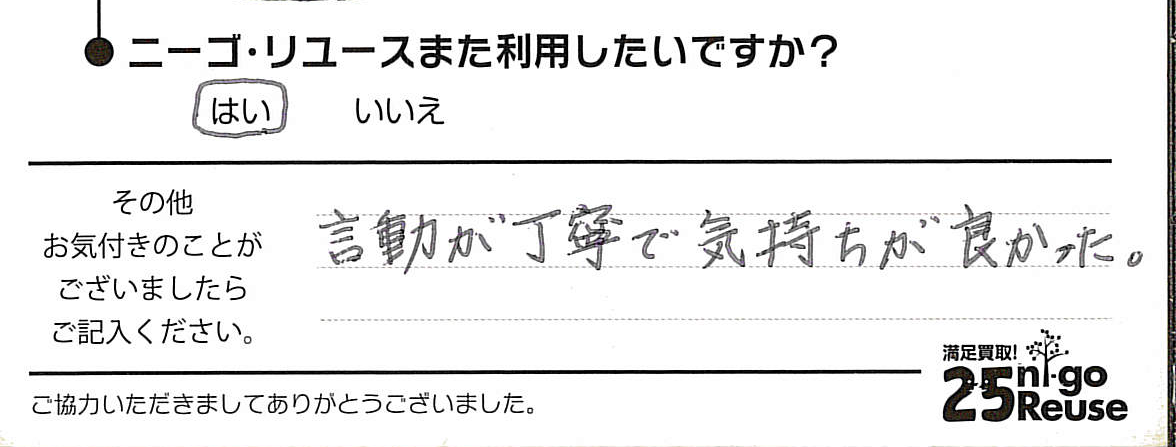 ニーゴ・リユースまた利用したいですか？
はい いいえ
その他
お気付きのことが
ございましたら
ご記入ください。
言動が丁寧で気持ちが良かった。
満足買取!
25 ni-go
Reuse
ご協力いただきましてありがとうございました。